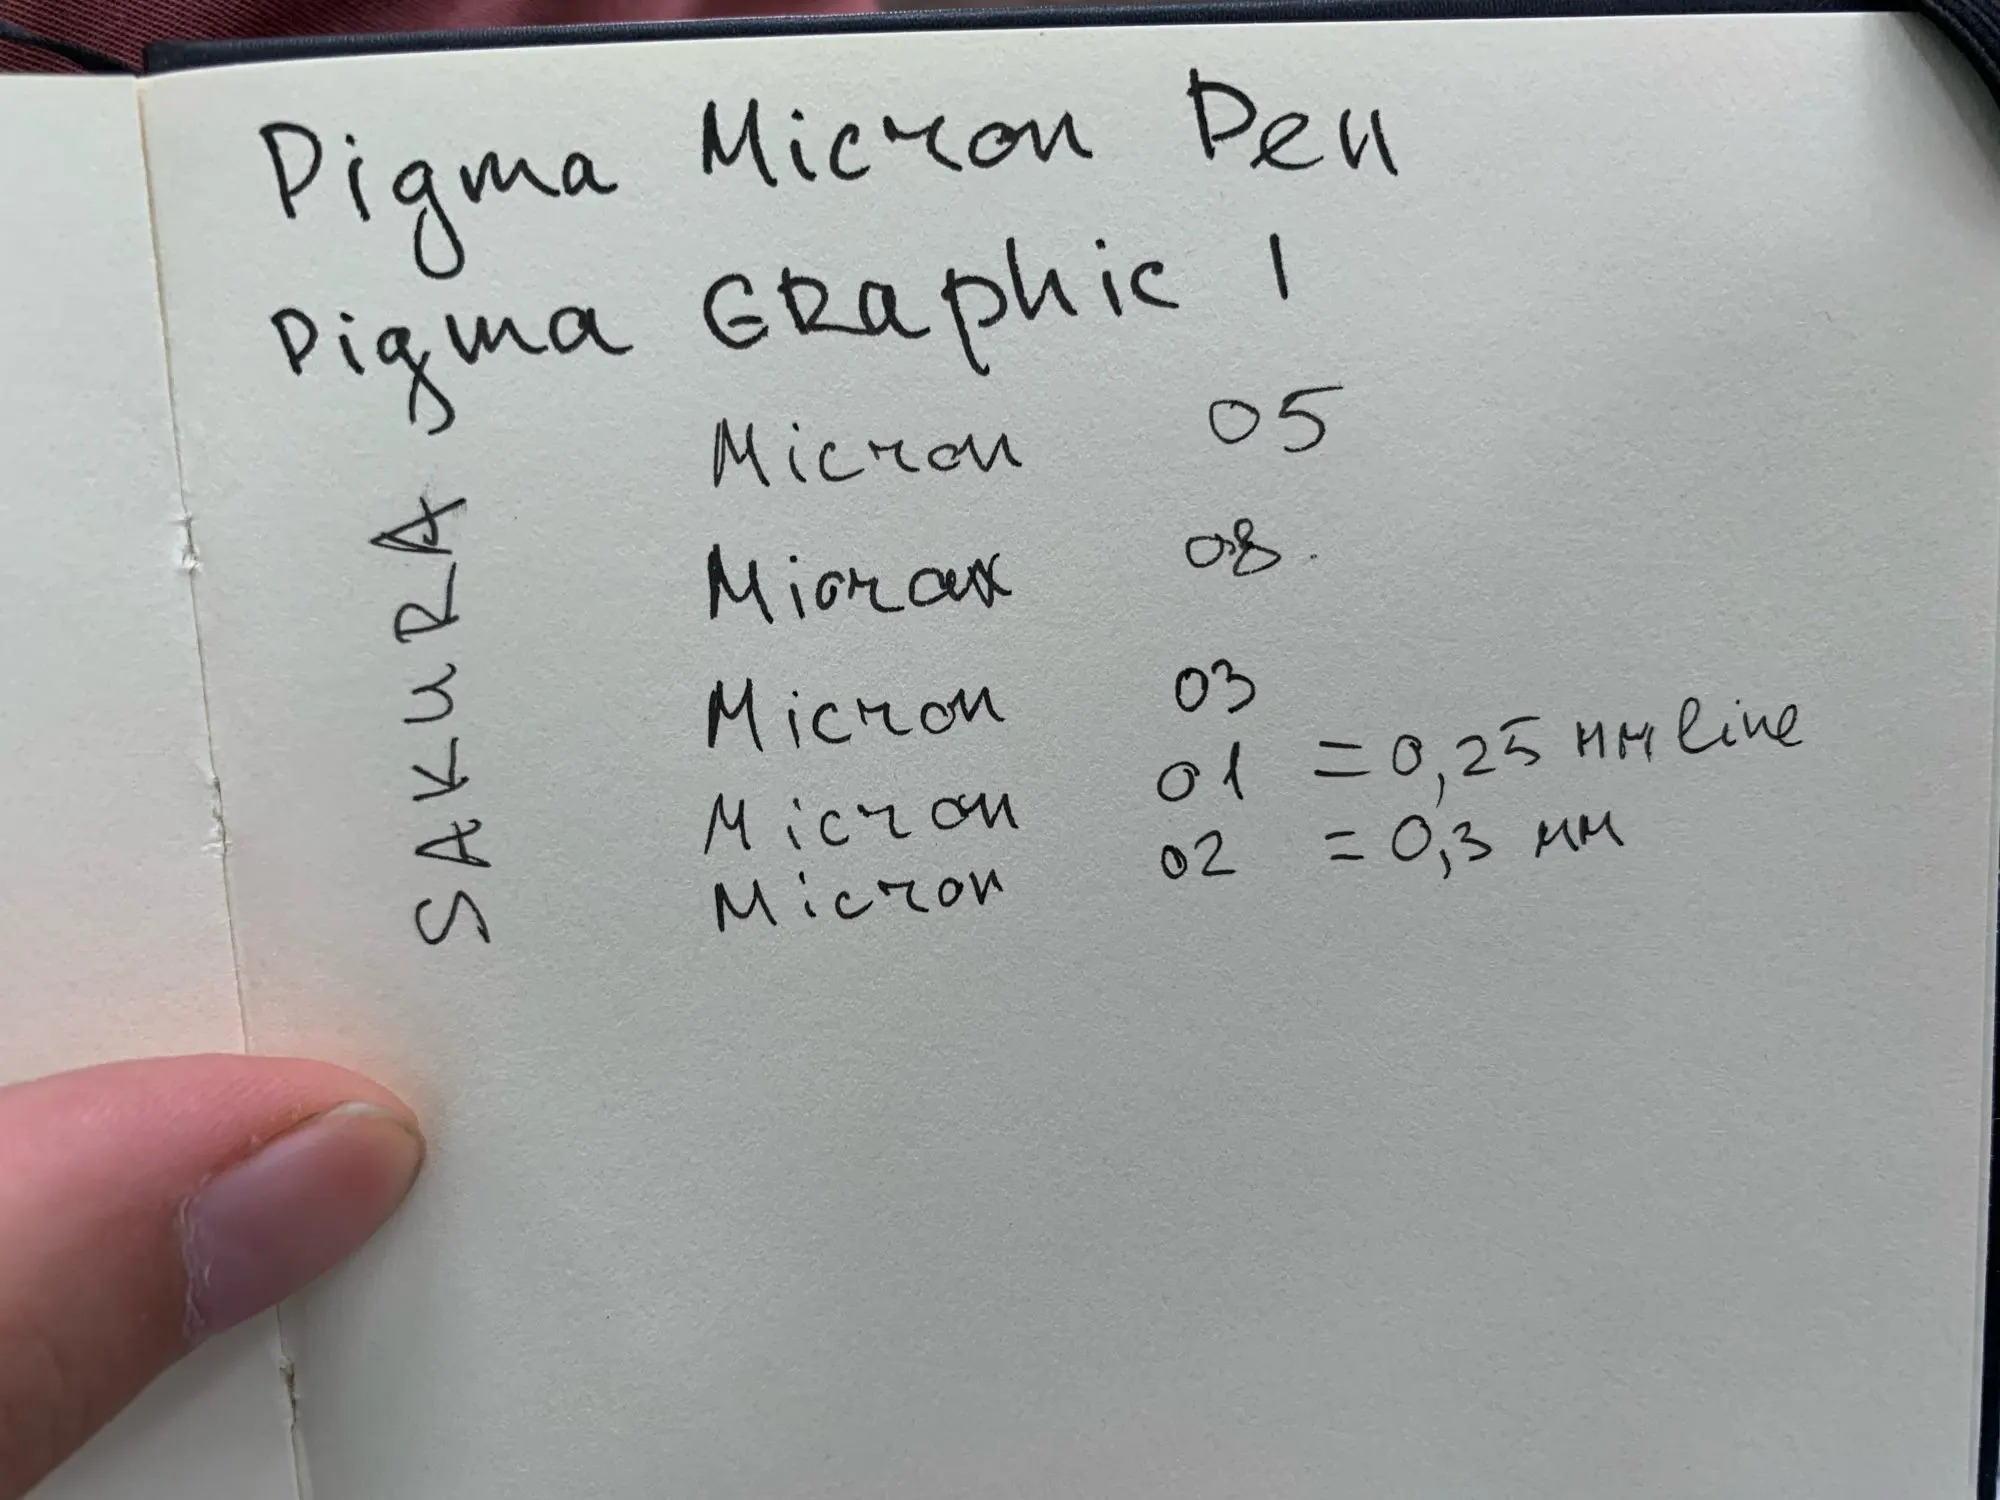 Pigma Micron Pen
Pigma GRaphic 1
SAKURA
Micron 05
Micron 08.
Micron 03
Micron 01 = 0,25 мм line
Micron 02 = 0,3 мм